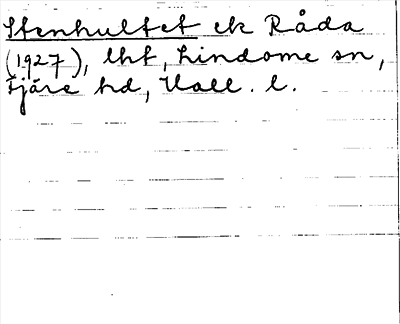 Stenhultet ek Råda
(1927), lht, Lindome sn,
Fjäre hd, Hall. l.